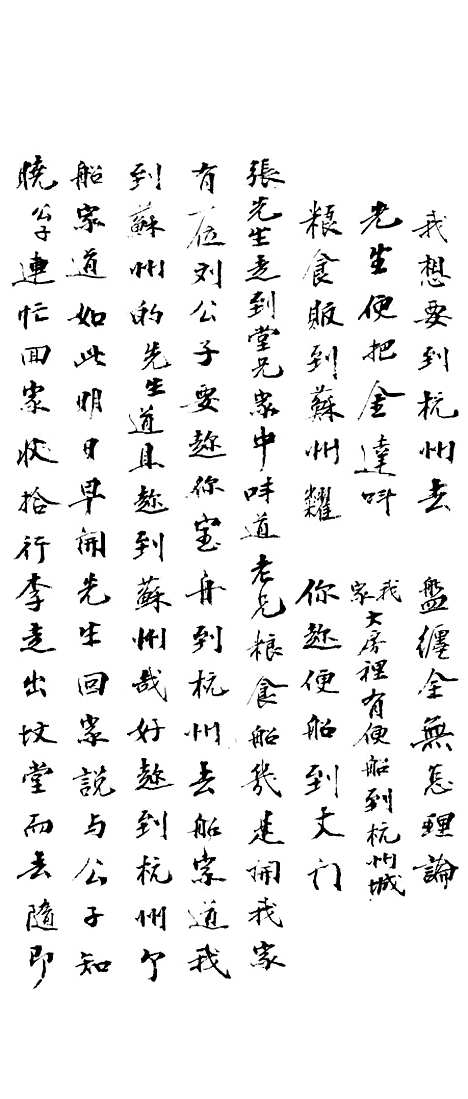 我想要到杭州去　盤纏全無怎理論
先生便把金達叫　我家大房裡有便船到杭州城
粮食販到蘇州糶　你趂便船到丈门
張先生走到堂兄家中呌道老兄粮食船幾走開我家
有一位刘公子要趂你宝舟到杭州去船家道我
到蘇州的先生道且趂到蘇州哉好趂到杭州个
船家道如此明日早開先生回家説与公子知
曉公子連忙回家收拾行李走出坟堂而去隨即